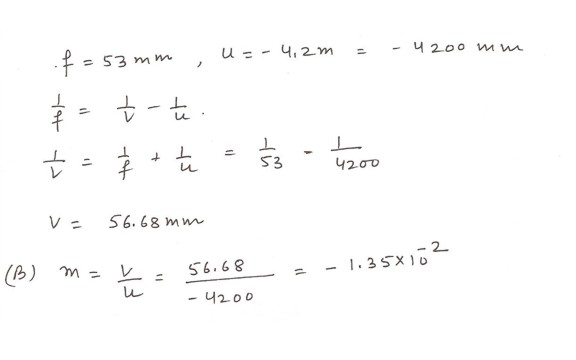 .f = 53 mm , u = - 4.2 m = - 4200 mm
1/f = 1/v - 1/u .
1/v = 1/f + 1/u = 1/53 - 1/4200
v = 56.68 mm
(B) m = v/u = 56.68/-4200 = - 1.35 × 10^-2